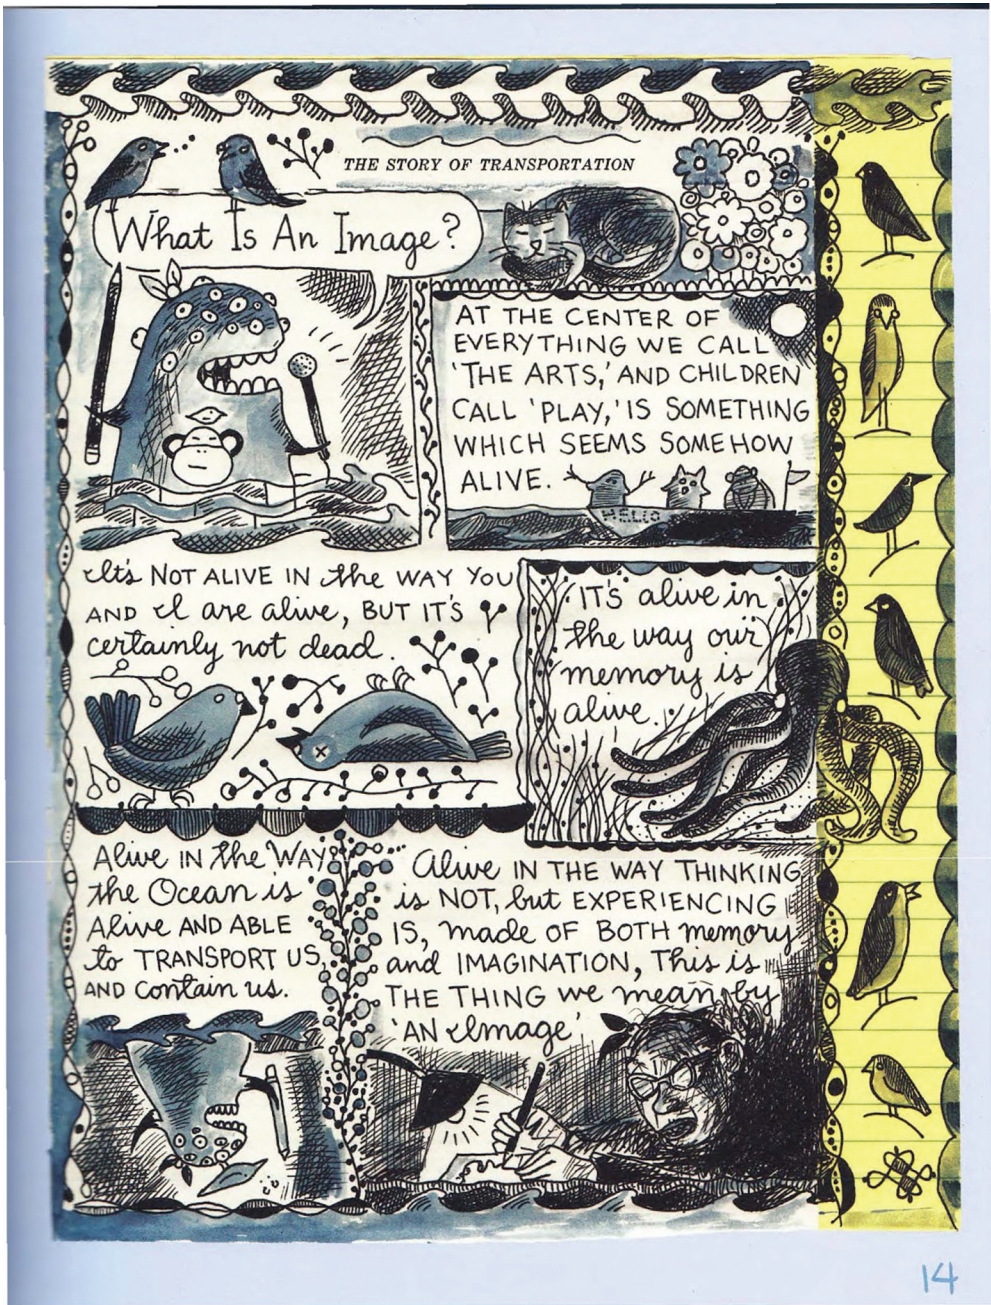 THE STORY OF TRANSPORTATION
What Is An Image?
AT THE CENTER OF
EVERYTHING WE CALL
'THE ARTS,' AND CHILDREN
CALL 'PLAY,' IS SOMETHING
WHICH SEEMS SOMEHOW
ALIVE.
HELLO
It's NOT ALIVE IN the WAY YOU
AND I are alive, BUT IT'S
certainly not dead.
IT'S alive in
the way our
memory is
alive.
Alive IN the WAY
the Ocean is
Alive AND ABLE
to TRANSPORT US
AND contain us.
Alive IN THE WAY THINKING
is NOT, but EXPERIENCING
IS, made OF BOTH memory
and IMAGINATION, This is
THE THING we mean by
'AN Image'
14